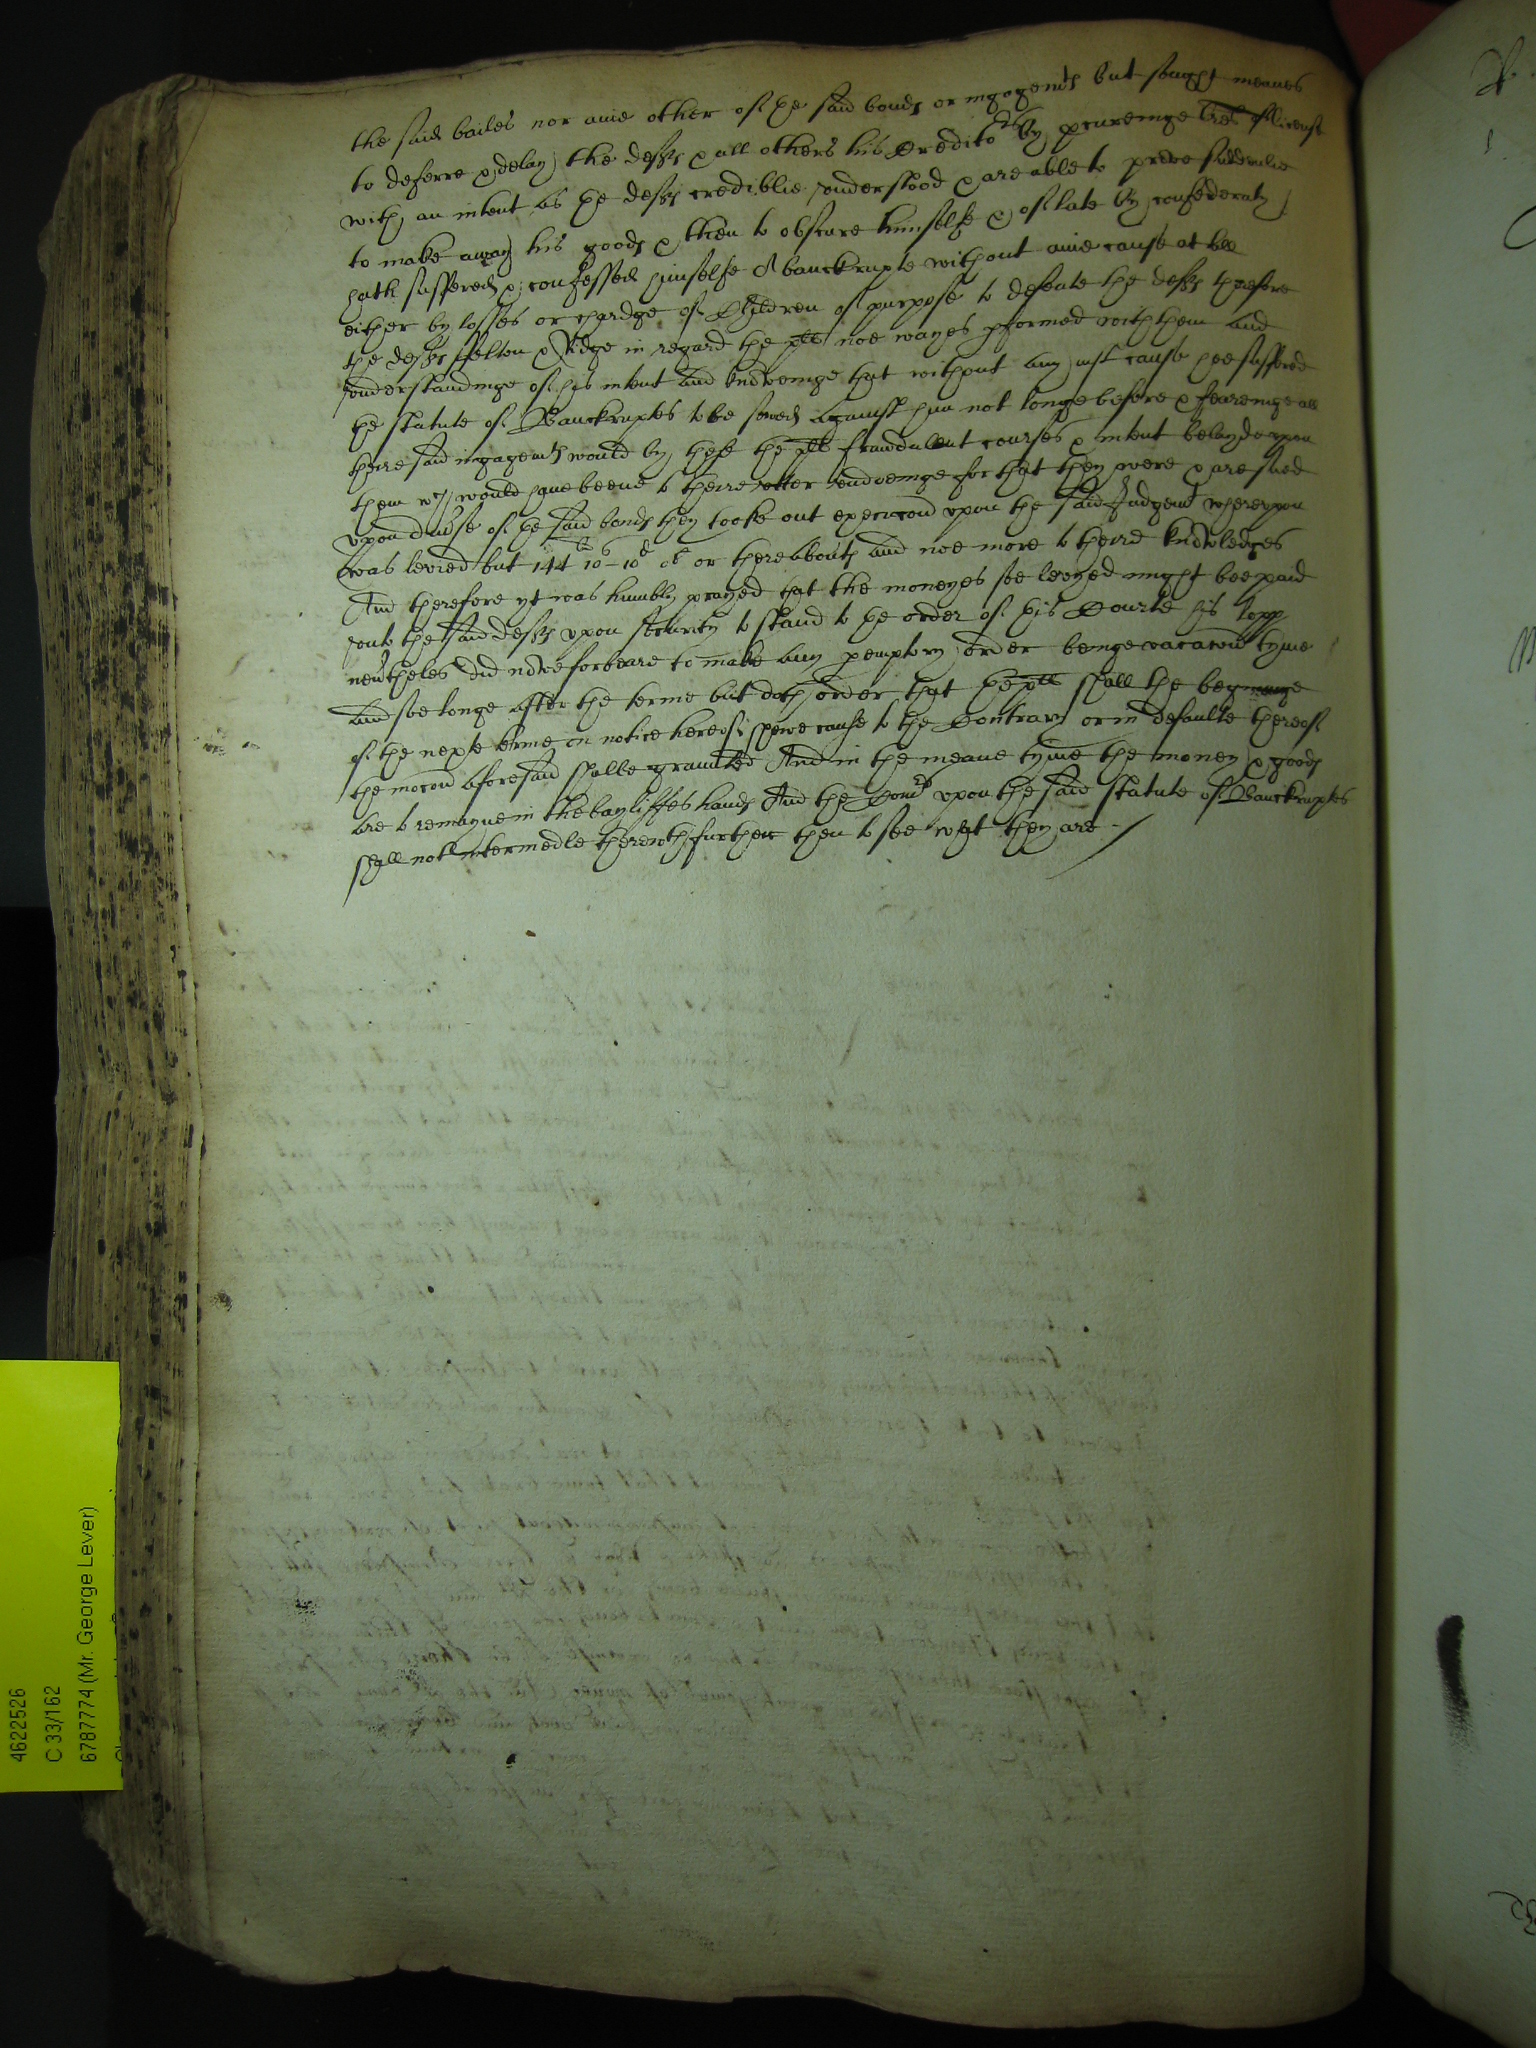 the said bailes nor anie other of the said bonds or ingagemts but sought meanes
to deferre & delay the defts & all others his Creditors by procureinge lres of licens
with an intent as the defts crediblie understood & are able to prove suddenlie
to make away his goods & then to obscure himselfe & of late by confederaty
hath suffered & confessed himselfe A banckrupte without anie cause at all
either by losses or chardge of Children of purpose to defeate the defts therefore
the defts Felton & Ridge in regard the plt noe wayes pformed with them and
understandinge of his intent and knoweinge that without any just cause hee suffered
the statute of Banckruptes to be sewed against him not longe before & feareinge all
theire said ingagemts would by these the plts frawdulent courses & intent be layde upon
them wch would have beene to theire utter undoeinge for that they were & are sued
upon diverse of the said bonds they tooke out execucond upon the said Judgemt whereupon
was levied but 144 li 10 s - 10 d ob or thereabouts and noe more to theire knowledges
And therefore yt was humbly prayed that the moneyes soe levyed might bee paid
unto the said defts upon security to stand to the order of this Courte his Lopp
nevtheles did nowe forbeare to make any pemptory order beinge vacacond tyme
and soe longe after the terme but doth order that the plt shall the beginninge
of the nexte terme on notice hereof shewe cause to the Contrary or in defaulte thereof
the mocond aforesaid shalbe graunted And in the meane tyme the money & goods
are to remayne in the bayliffes hands And the Comrs upon the said statute of Banckruptes
shall not intermedle therewth further then to see what they are
4622526
C 33/162
6787774 (Mr. George Lever)